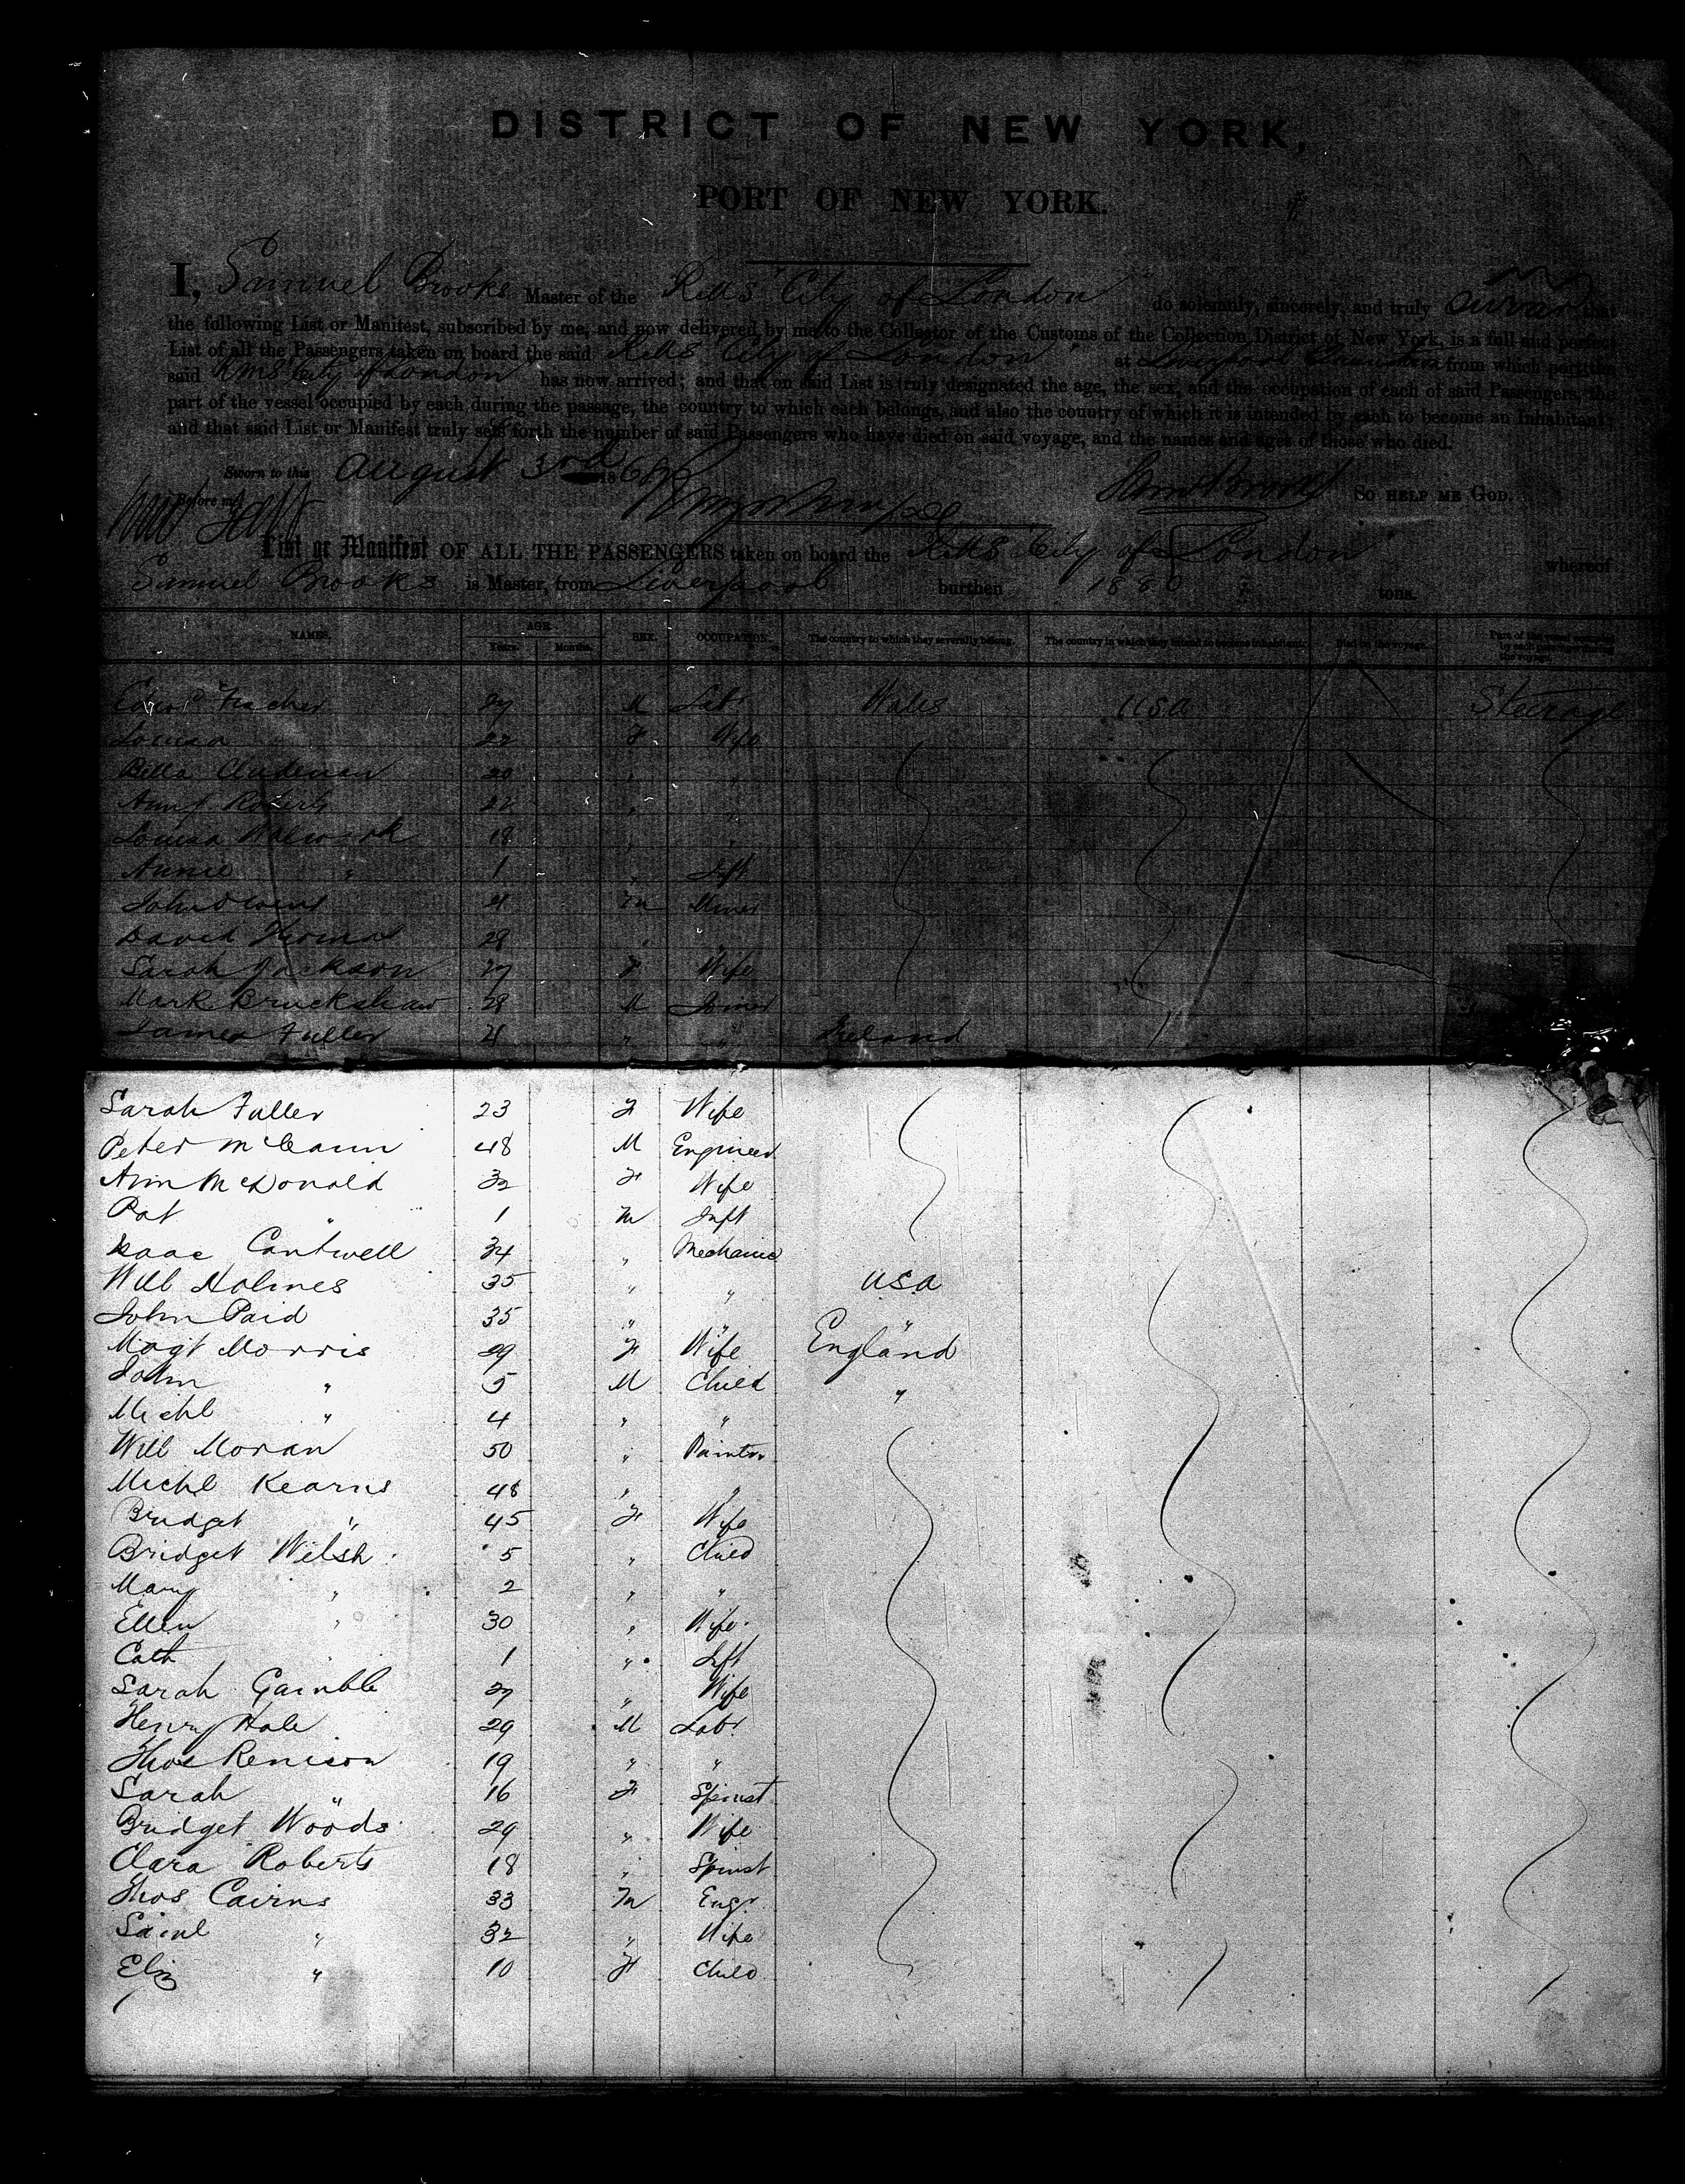 DISTRICT OF NEW YORK,
PORT OF NEW YORK.
I, Samuel Brooks Master of the RMS "City of London" do solemnly, sincerely, and truly swear that
the following List or Manifest, subscribed by me, and now delivered by me to the Collector of the Customs of the Collection District of New York, is a full and perfect
List of all the Passengers taken on board the said RMS "City of London" at Liverpool from which port the
said RMS "City of London" has now arrived; and that on said List is truly designated the age, the sex, and the occupation of each of said Passengers, the
part of the vessel occupied by each during the passage, the country to which each belongs, and also the country of which it is intended by each to become an Inhabitant;
and that said List or Manifest truly sets forth the number of said Passengers who have died on said voyage, and the names and ages of those who died.
Sworn to this August 3rd 1868
Before me Saml Brooks SO HELP ME GOD.
List or Manifest OF ALL THE PASSENGERS taken on board the RMS "City of London" whereof
Samuel Brooks is Master, from Liverpool burthen 1880 tons.
NAMES. AGE. Years. Months. SEX. OCCUPATION. The country to which they severally belong. The country in which they intend to become inhabitants. Died on the voyage. Part of the vessel occupied by each passenger during the voyage.
27 M Labr Wales USA Steerage
Louisa 22 F Wife
Bella 20 " "
Roberts 22 " "
Louisa 18 " "
Annie " 1 " Inft
John Owens 21 M Miner
David Thomas 28 " "
Sarah Jackson 27 F Wife
Mark Bruckshaw 28 M Joiner
James Fuller 21 " " Ireland
Sarah Fuller 23 F Wife
Peter McCann 48 M Engineer
Ann McDonald 32 F Wife
Pat " 1 M Inft
Isaac Cantwell 34 " Mechanic
Will Holmes 35 " " USA
John Paid 35 " " "
Magt Morris 29 F Wife England
John " 5 M Child "
Michl " 4 " "
Will Moran 50 " Painter
Michl Kearns 48 " "
Bridget " 45 F Wife
Bridget Welsh 5 " Child
Mary " 2 " "
Ellen " 30 " Wife
Cath " 1 " Inft
Sarah Gamble 27 " Wife
Henry Hale 29 M Labr
Thos Renison 19 " "
Sarah " 16 F Spinst
Bridget Woods 29 " Wife
Clara Roberts 18 " Spinst
Thos Cairns 33 M Engr
Saml " 32 " Wife
Eliz " 10 F Child